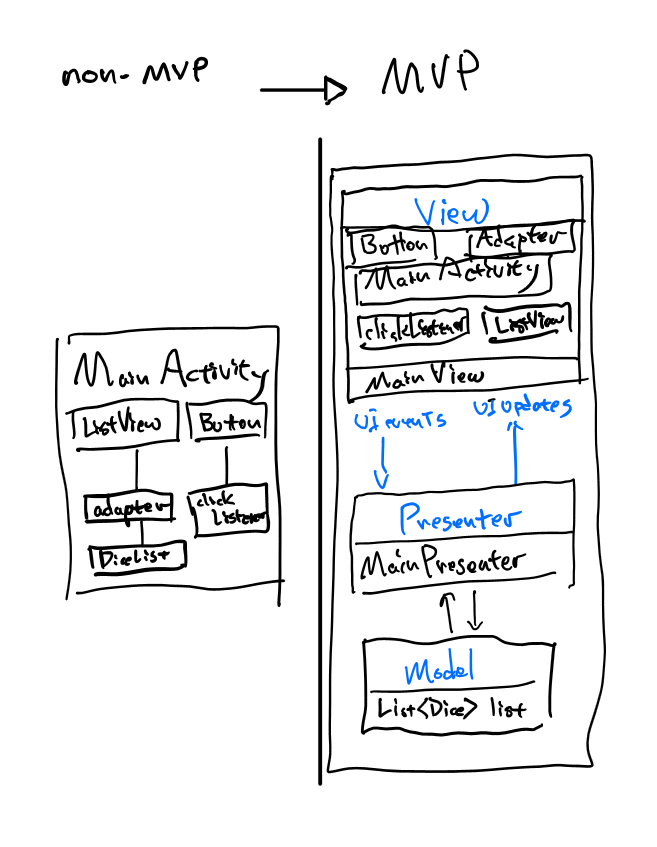 non-MVP
MVP
Main Activity
ListView
Button
adapter
click
Listener
DiceList
View
Button
Adapter
Main Activity
clickListener
ListView
MainView
UI events
UI updates
Presenter
MainPresenter
Model
List<Dice> list